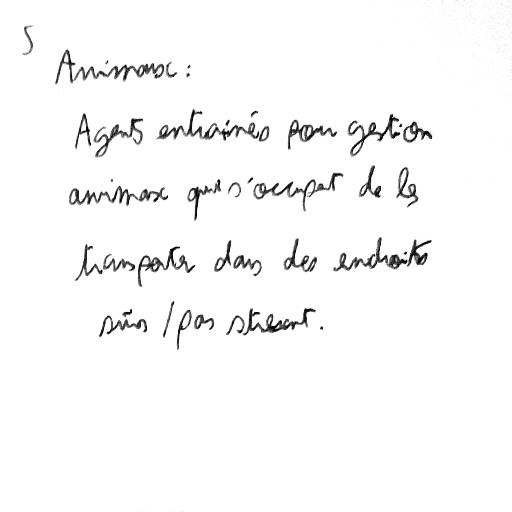 5
Animaux :
Agents entrainés pour gestion
animaux qui s'occupent de les
transporter dans des endroits
sûrs / pas stressant.